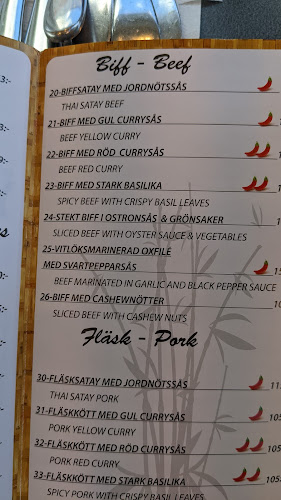 Biff - Beef
20-BIFFSATAY MED JORDNÖTSSÅS
THAI SATAY BEEF
21-BIFF MED GUL CURRYSÅS
BEEF YELLOW CURRY
22-BIFF MED RÖD CURRYSÅS
BEEF RED CURRY
23-BIFF MED STARK BASILIKA
SPICY BEEF WITH CRISPY BASIL LEAVES
24-STEKT BIFF I OSTRONSÅS & GRÖNSAKER
SLICED BEEF WITH OYSTER SAUCE & VEGETABLES
25-VITLÖKSMARINERAD OXFILE
MED SVARTPEPPARSÅS
BEEF MARINATED IN GARLIC AND BLACK PEPPER SAUCE
26-BIFF MED CASHEWNÖTTER
SLICED BEEF WITH CASHEW NUTS
Fläsk - Pork
30-FLÄSKSATAY MED JORDNÖTSSÅS
THAI SATAY PORK
31-FLÄSKKÖTT MED GUL CURRYSÅS
PORK YELLOW CURRY
32-FLÄSKKÖTT MED RÖD CURRYSÅS
PORK RED CURRY
33-FLÄSKKÖTT MED STARK BASILIKA
SPICY PORK WITH CRISPY BASIL LEAVES